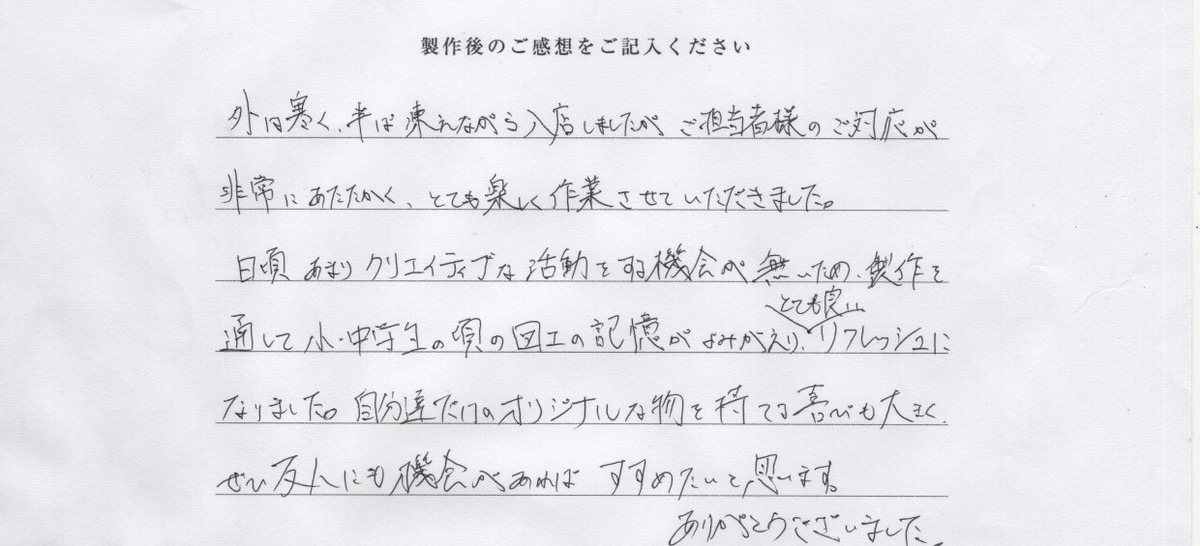 製作後のご感想をご記入ください
外は寒く、半ば凍えながら入店しましたが ご担当者様のご対応が
非常にあたたかく、とても楽しく作業させていただきました。
日頃 あまりクリエイティブな活動をする機会が無いため、製作を
とても良い
通して小・中学生の頃の図工の記憶がよみがえり、リフレッシュに
なりました。自分達だけのオリジナルな物を持てる喜びも大きく、
ぜひ友人にも機会があれば すすめたいと思います。
ありがとうございました。